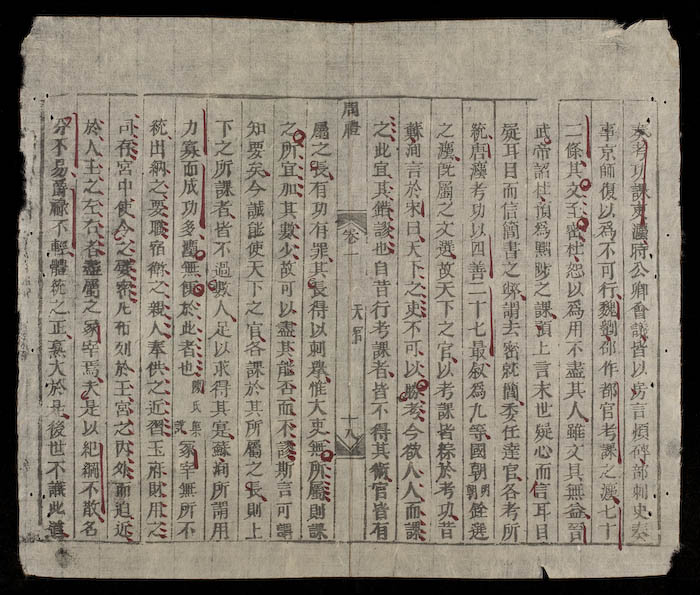 奏考功課吏漢時公卿會議皆以房言煩碎部刺史奏
事京師復以為不可行魏劉邵作都官考課之漢七十
二條其文至密杜恕以為用不盡其人雖文具無益晉
武帝詔杜預為黜陟之課預上言末世疑心而信耳目
疑耳目而信簡書之弊謂去密就簡委任達官各考所
統唐漢考功以四善二十七最叙為九等國朝明銓選
之漢既屬之文選故天下之官以考課皆綜於考功昔
蘇洵言於宋曰天下之吏不可以勝考今欲人人而課
之此宜其錯謬也自昔行考課者皆不得其術官皆有
周禮 卷一 天官 十八
屬之長有功有罪其長得以刺舉惟大吏無所屬則課
之所宜加其數少故可以盡其能否而不謬斯言可謂
知要矣今誠能使天下之官各課於其所屬之長則上
下之所課者皆不過數人足以求得其寔蘇洵所謂用
力寡而成功多漢無便於此者也 陳氏集 冢宰無所不
統出納之要職宿衛之親人奉供之近習玉府財用之
司在宮中使令之 密凡布列於王宮之內外而迫近
於人王之左右者盡屬之冢宰焉夫是以紀綱不散名
分不易爵祿不輕體統之正莫大於是後世不識此道